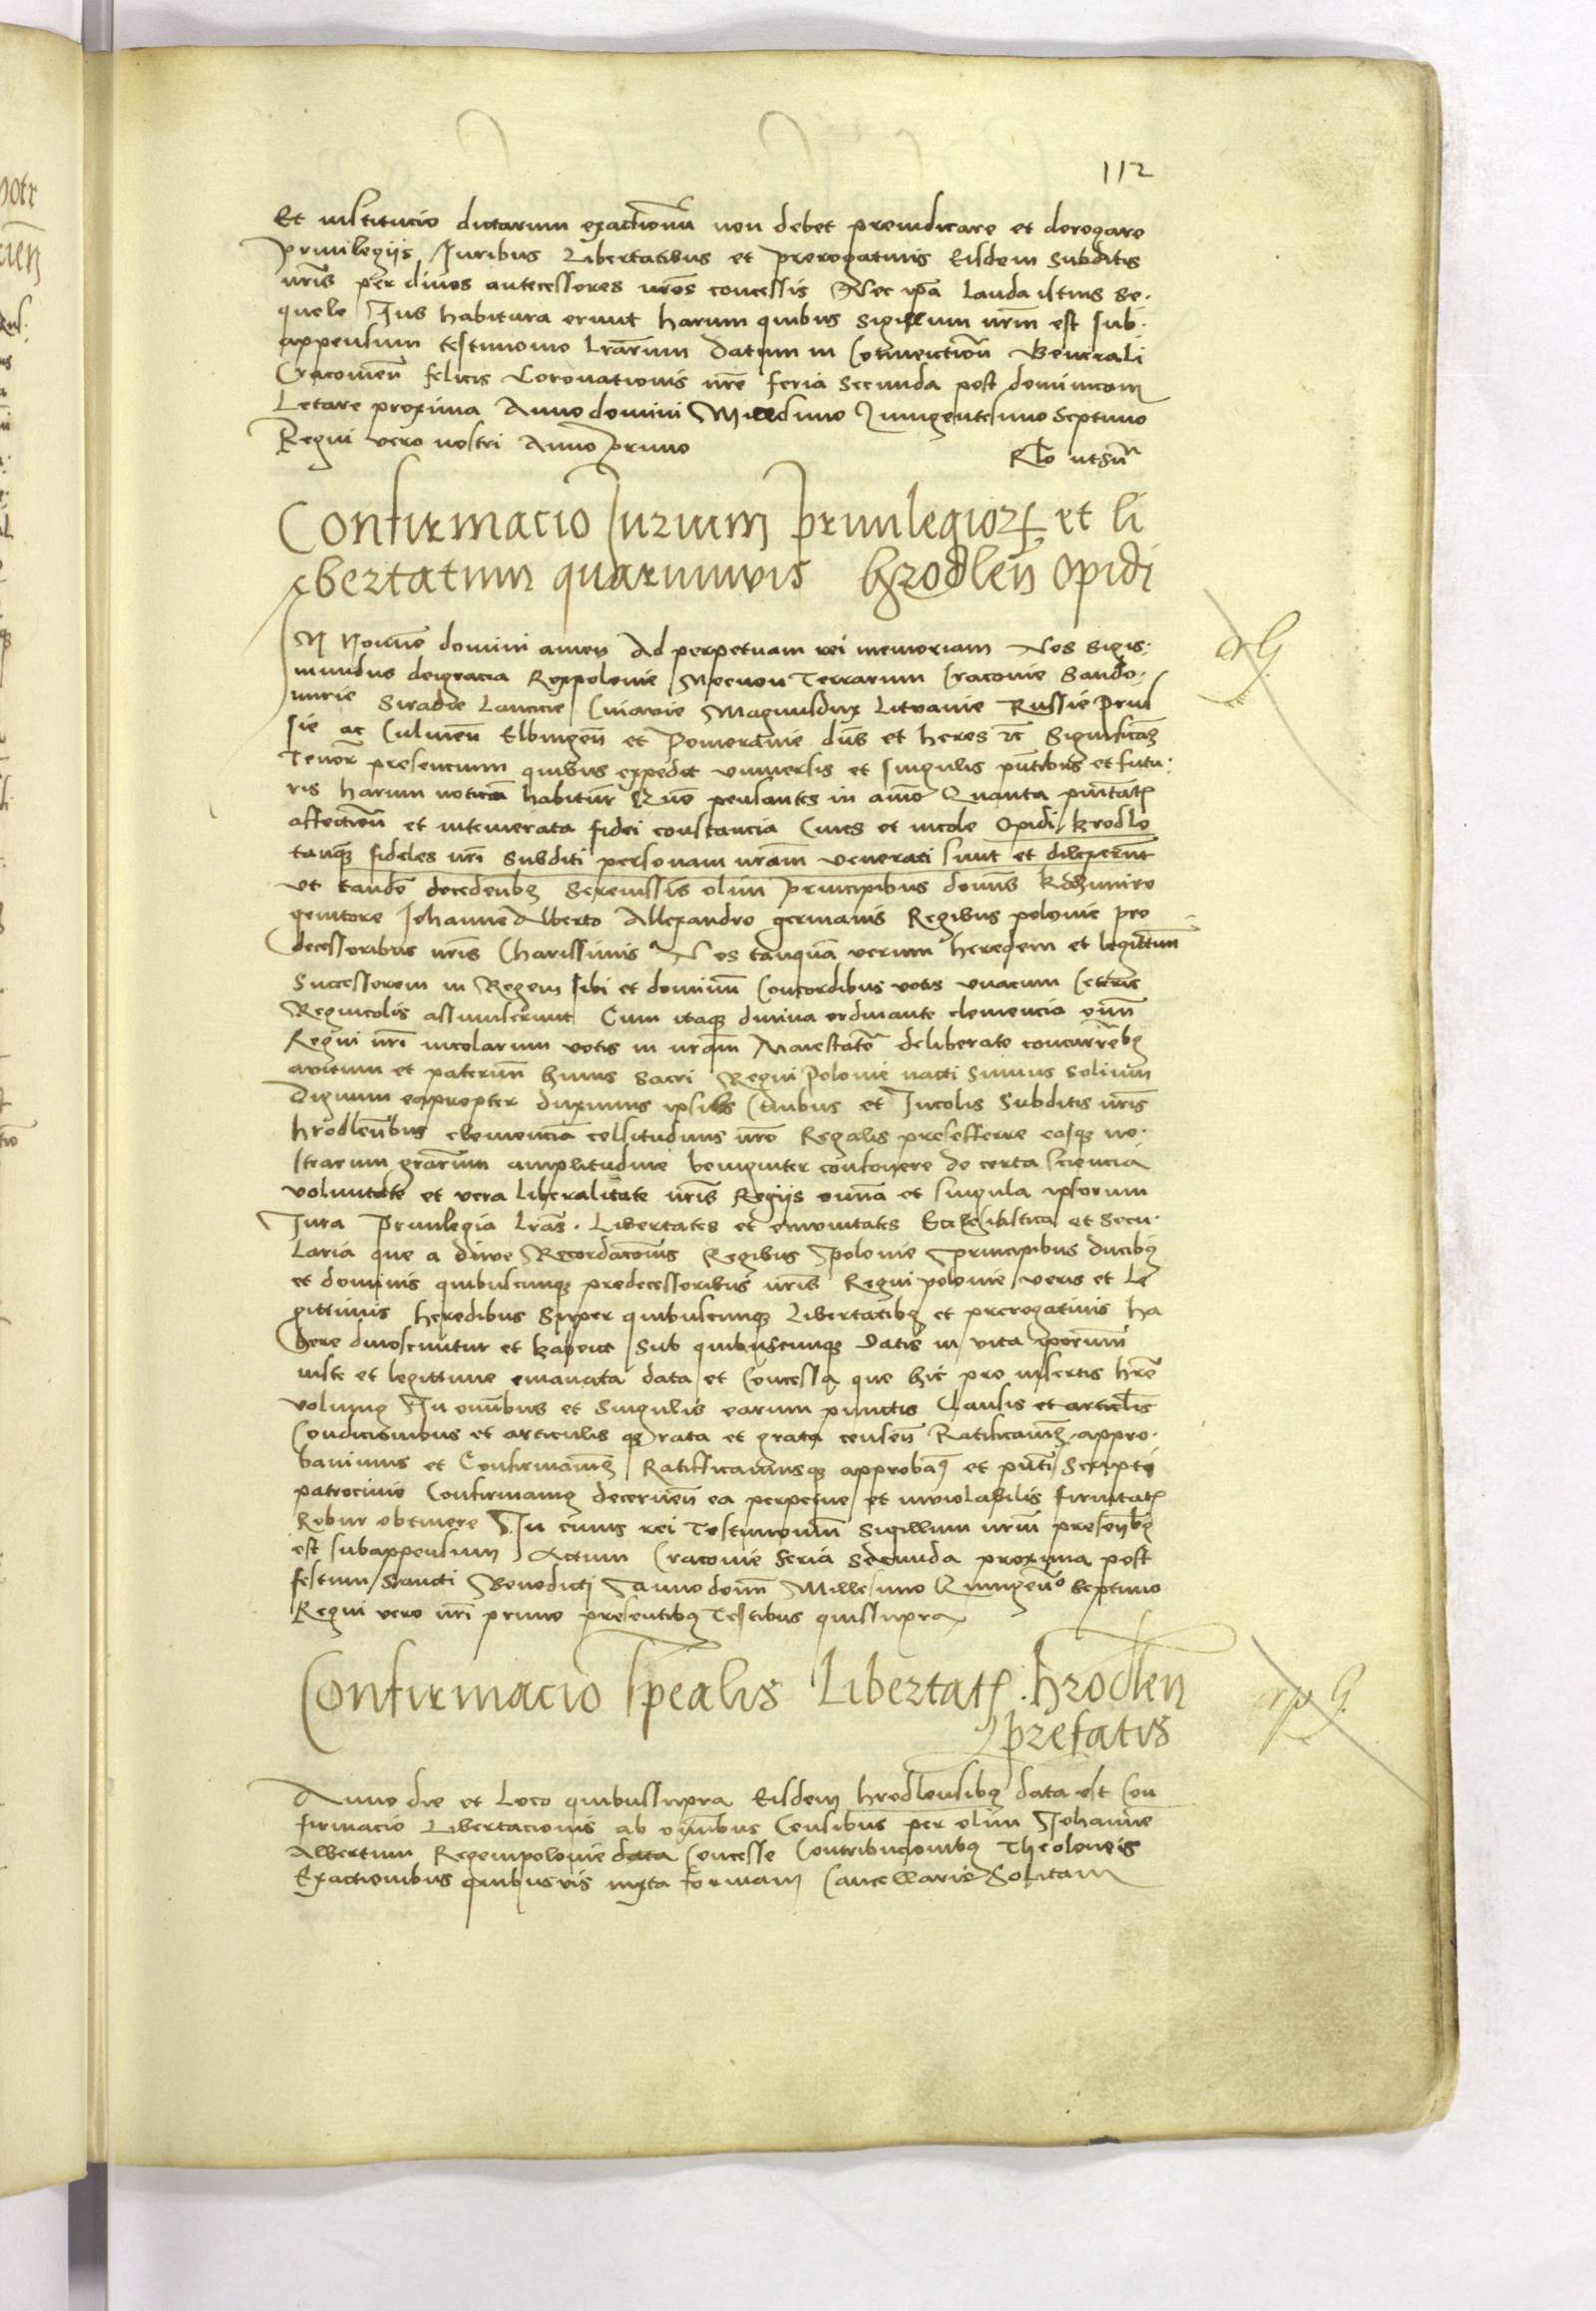 112
Et institucio dictarum exactionu non debet preiudicare et derogare
privilegiis Iuribus Libertatibus et prerogativis Eisdem Subditis
nr̃is per divos antecessores nr̃os concessis Nec ip̃a lauda istius se·
quele Ius habitura erunt harum quibus sigillum nr̃m est sub·
appensum testimonio lr̃arum Datum in Co[n]ventioñ Generali
Cracovieñ felicis Coronationis nr̃e feria Secunda post dominicam
Letare proxima Anno domini Millesimo Quingentesimo Septimo
Regni vero nostri Anno primo
Rlo utsũ
Confirmacio Iurium privilegior̃ et li
bertatum quarumvis hrodleñ opidi
IN Nomine domini amen Ad perpetuam rei memoriam Nos Sigis·
mundus dei gracia Rex polonie Necnon Terrarum Cracovie Sando·
mirie Siradie Lancicie Cuiavie Magnusdux Litvanie Russie Prus
sie ac Culmeñ Elbingeñ et Pomeranie dñs et heres etc̃ Significam9
Tenor̃ presencium quibus expedit universis et singulis pñtibus et futu·
ris harum noticiã habitur̃ Quo pensantes in aĩo Quanta
affectioñ et intemerata fidei constancia Cives et incole Opidi hrodlo
tanq3 fideles nr̃i Subditi personam nr̃am venerati sunt et dilexerũt
ut tandẽ decedentib9 Serenissis̃ olim principibus dominis Kazimiro
genitore Iohanne Alberto Allexandro germanis Regibus polonie pre
decessoribus nr̃is Charissimis Nos tanquã verum heredem et legittimũ
Successorem in Regem sibi et dominũ Concordibus votis unacum Ceteris
Regnicolis assumserunt Cum itaq3 divina ordinante clemencia oĩm
Regni nr̃i incolarum votis in nr̃am Maiestatẽ deliberate concurrẽtib9
avitum et paternũ huius Sacri Regni Polonie nacti Sumus Solium
Dignum eapropter duximus ipsis Civibus et Incolis Subditis nr̃is
hrodleñbus clemenciã celsitudinis nr̃e Regalis preseferre eosq3 no·
strarum gr̃arum amplitudine benigniter confovere de certa sciencia
voluntate et vera liberalitate nr̃is Regiis omĩa et singula ipsorum
Iura Privilegia Lr̃as · Libertates et emunitates Ecclesiastica et Secu·
laria que a dive Recordacionis Regibus Polonie principibus ducib9
et dominis quibuscunq3 predecessoribus nr̃is Regni polonie veris et Le
gittimis heredibus Super quibuscunq3 Libertatib9 et prerogativis ha
bere dinoscuntur et habent Sub quibuscunq3 Datis in vita ip̃orum
iuste et legittime emanata data et Concessa que hic pro insertis hr̃e
volum9 In om̃ibus et Singulis earum punctis Clausis et articl̃is
Condicionibus et articulis q3 rata et grata censeñ Ratificavim9 appro·
bavimus et Confirmavim9 Ratifficamusq3 approbam9 et pñti Scripti
patrocinio Confirmam9 decerneñ ea perpetue et inviolabilis firmitatis
Robur obtinere In cuius rei Testimoniũ Sigillum nr̃m presentib9
est subappensum Actum Cracovie Feria Secunda proxima post
festum Sancti Benedicti Anno domi Millesimo Quingentẽo Septimo
Regni vero nr̃i primo presentib9 Testibus quissupra
Confirmacio Sp̃ealis Libertatis hrodleñ
prefatis
Anno die et Loco quibussupra Eisdem hrodlensib9 data est Con
firmacio Libertacionis ab om̃ibus Censibus per olim Iohanne
Albertum Regempolonie data Concesse Contribucionib9 Theoloneis
Exactionibus quibusvis iuxta formam Cancellarie Solitam